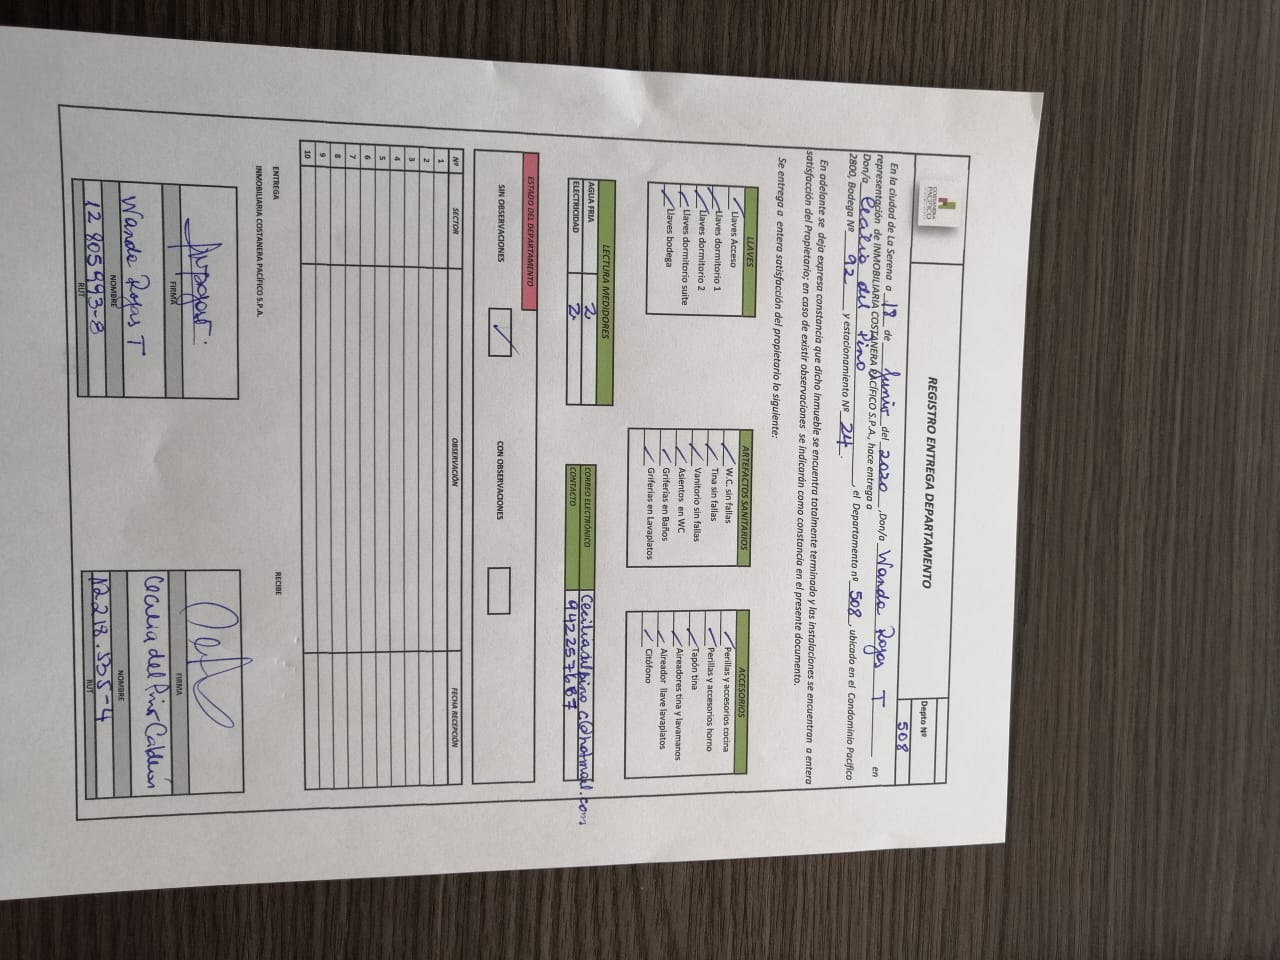 COSTANERA
PACIFICO
REGISTRO ENTREGA DEPARTAMENTO
Depto Nº
508
En la ciudad de La Serena a 18 de Junio del 2020, Don/a Wanda Rojas T en
representación de INMOBILIARIA COSTANERA PACÍFICO S.P.A., hace entrega a
Don/a Cecilia del Pino, el Departamento nº 508, ubicado en el Condominio Pacífico
2800, Bodega Nº 92 y estacionamiento Nº 24.
En adelante se deja expresa constancia que dicho Inmueble se encuentra totalmente terminado y las instalaciones se encuentran a entera
satisfacción del Propietario; en caso de existir observaciones se indicarán como constancia en el presente documento.
Se entrega a entera satisfacción del propietario lo siguiente:
LLAVES
Llaves Acceso
Llaves dormitorio 1
Llaves dormitorio 2
Llaves dormitorio suite
Llaves bodega
ARTEFACTOS SANITARIOS
W.C. sin fallas
Tina sin fallas
Vanitorio sin fallas
Asientos en WC
Griferías en Baños
Griferías en Lavaplatos
ACCESORIOS
Perillas y accesorios cocina
Perillas y accesorios horno
Tapón tina
Aireadores tina y lavamanos
Aireador llave lavaplatos
Citófono
LECTURA MEDIDORES
AGUA FRIA 2
ELECTRICIDAD 2
CORREO ELECTRÓNICO Ceciliadelpino c@hotmail.com
CONTACTO 942257687
ESTADO DEL DEPARTAMENTO
SIN OBSERVACIONES
CON OBSERVACIONES
Nº SECTOR OBSERVACIÓN FECHA RECEPCIÓN
1
2
3
4
5
6
7
8
9
10
ENTREGA
INMOBILIARIA COSTANERA PACIFICO S.P.A.
FIRMA
Wanda Rojas T
NOMBRE
12 905993-8
RUT
RECIBE
FIRMA
Cecilia del Pino Calderón
NOMBRE
12.218.535-4
RUT